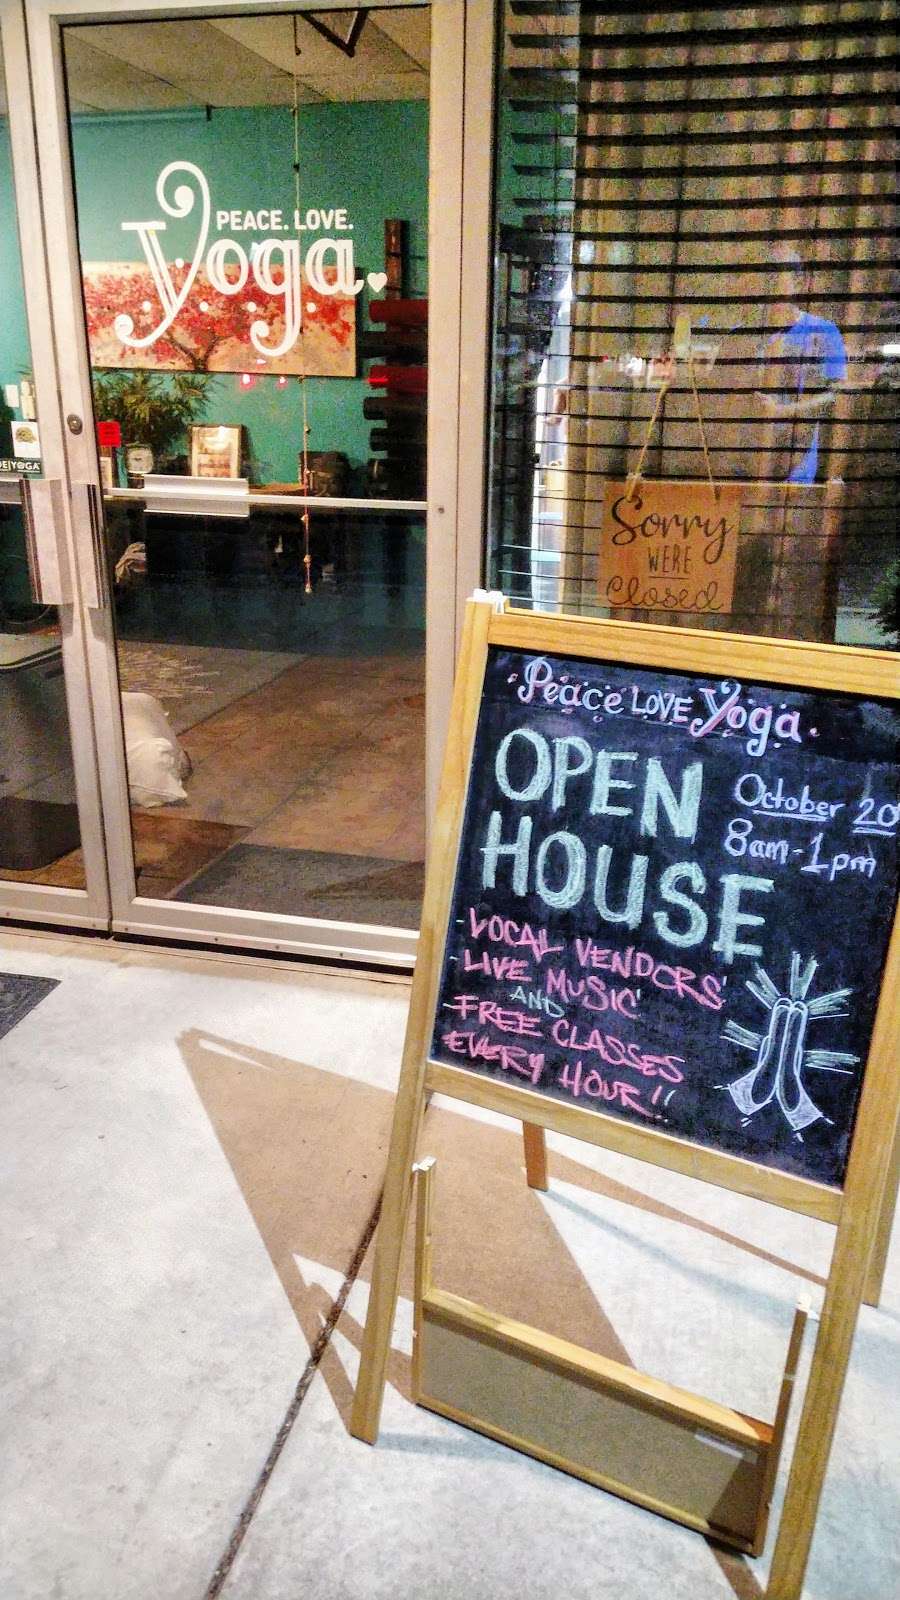 PEACE. LOVE.
yoga.
YOGA
Sorry
WE'RE
Closed
Peace LOVE Yoga
OPEN
HOUSE
October 20
8am-1pm
-LOCAL VENDORS
-LIVE MUSIC
AND
-FREE CLASSES
EVERY HOUR!!